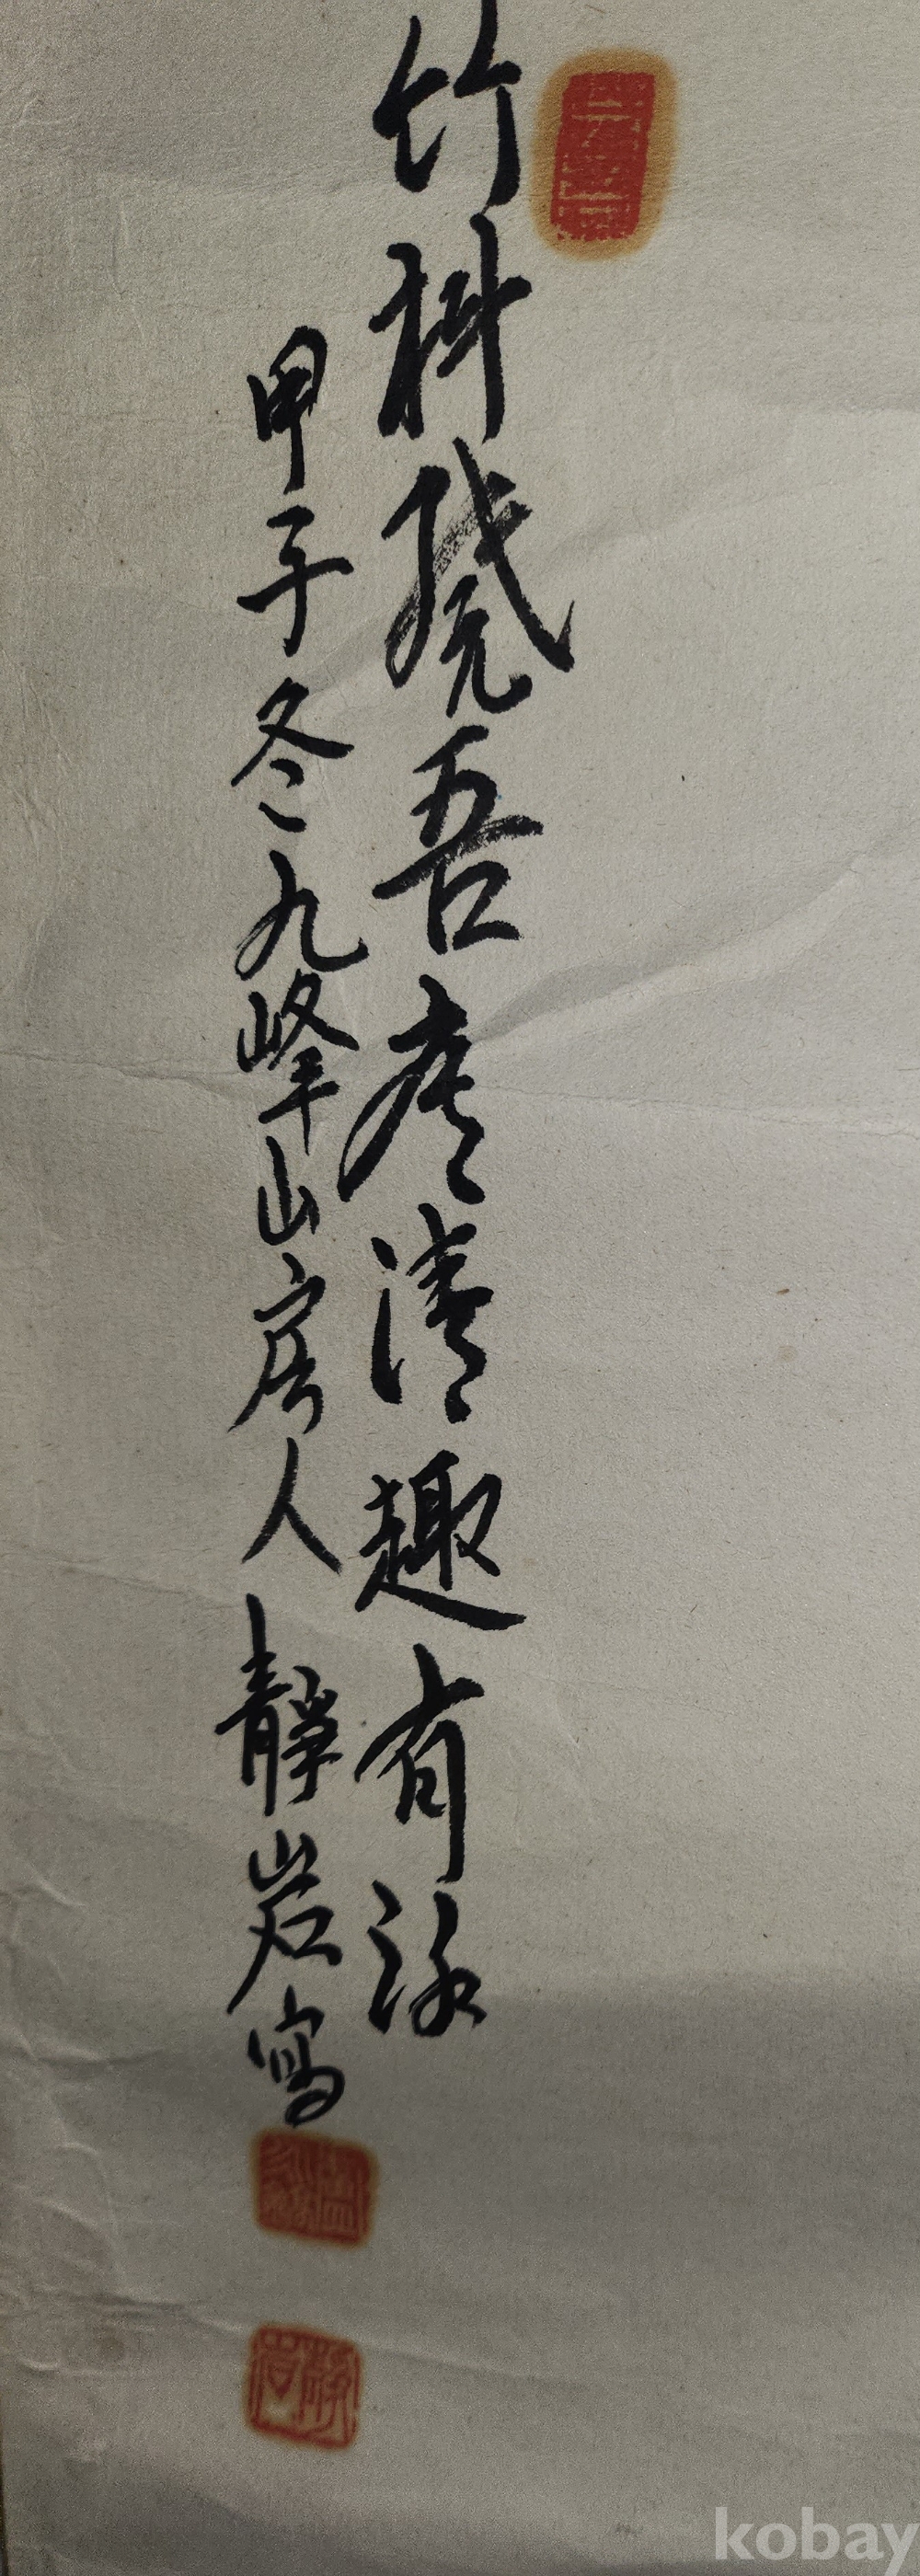 竹樹繞吾廬清趣有
甲子冬九峰山房人靜岩寫
kobay